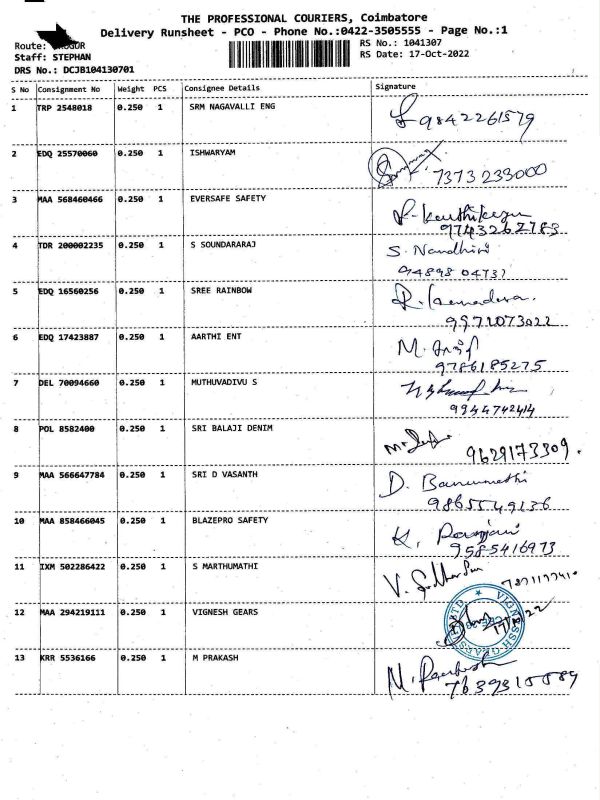 THE PROFESSIONAL COURIERS, Coimbatore
Delivery Runsheet - PCO - Phone No.:0422-3505555 - Page No.:1
Route:
RS No.: 1041307
Staff: STEPHAN
RS Date: 17-Oct-2022
DRS No.: DCJB104130701
S No Consignment No Weight PCS Consignee Details Signature
1 TRP 2548018 0.250 1 SRM NAGAVALLI ENG
9842261579
2 EDQ 25570060 0.250 1 ISHWARYAM
7373233000
3 MAA 568460466 0.250 1 EVERSAFE SAFETY
9743262783
4 TDR 200002235 0.250 1 S SOUNDARARAJ S. Nandhini
5 EDQ 16560256 0.250 1 SREE RAINBOW
6 EDQ 17423887 0.250 1 AARTHI ENT
9786185275
7 DEL 70094660 0.250 1 MUTHUVADIVU S
9944742414
8 POL 8582400 0.250 1 SRI BALAJI DENIM
9629173309.
9 MAA 566647784 0.250 1 SRI D VASANTH D.
9865549136
10 MAA 858466045 0.250 1 BLAZEPRO SAFETY K. Ranjani
9585416973
11 IXM 502286422 0.250 1 S MARTHUMATHI
12 MAA 294219111 0.250 1 VIGNESH GEARS
13 KRR 5536166 0.250 1 M PRAKASH M. Prakash